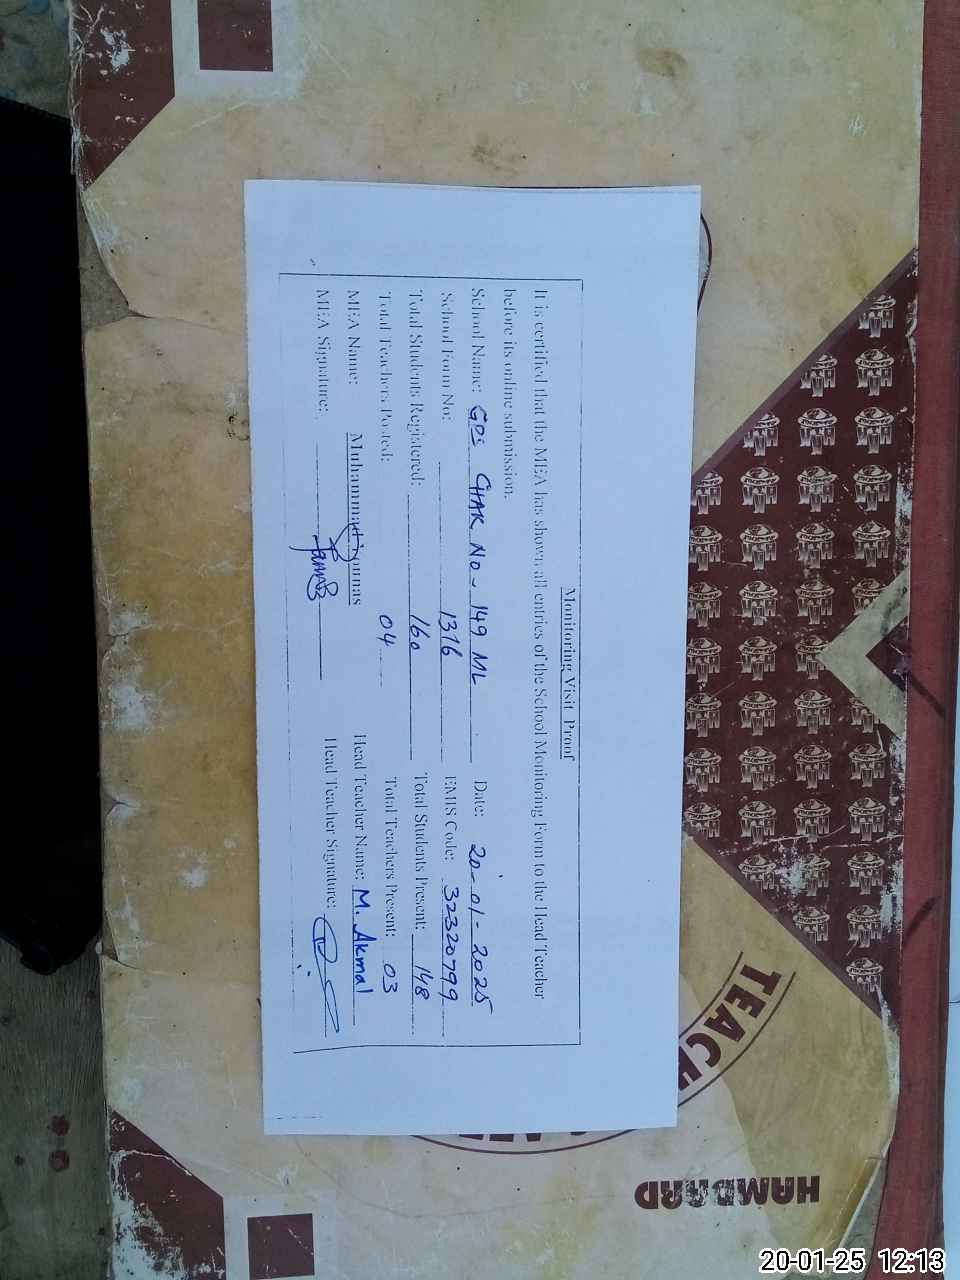 Monitoring Visit Proof
It is certified that the MEA has shown all entries of the School Monitoring Form to the Head Teacher
before its online submission.
School Name: GPS CHAK No - 149 ML Date: 20-01-2025
School Form No: 1316 EMIS Code: 32320799
Total Students Registered: 160 Total Students Present: 148
Total Teachers Posted: 04 Total Teachers Present: 03
MEA Name: Muhammad Younas Head Teacher Name: M. Akmal
MEA Signature: Head Teacher Signature:
TEACH
HAMDARD
20-01-25 12:13